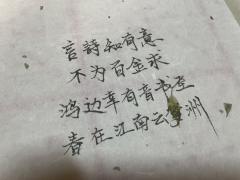 言詩知有意
不为百金求
鸿边幸有音书至
春在江南云梦洲